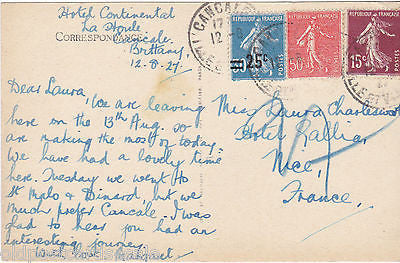 Hotel Continental
La Houle
Cancale
Brittany
12-8-27
CORRESPONDANCE
Dear Laura, We are leaving
here on the 13th Aug. so
are making the most of today.
We have had a lovely time
here. Tuesday we went to
St Malo & Dinard, but we
much prefer Cancale. I was
glad to hear you had an
interesting journey.
With love Margaret
CANCALE
17
12 8
REPUBLIQUE FRANÇAISE
25c
POSTES
REPUBLIQUE FRANÇAISE
50c
POSTES
REPUBLIQUE FRANÇAISE
15c
POSTES
Miss Laura Charlesworth
Hotel Gallia
Nice,
France.